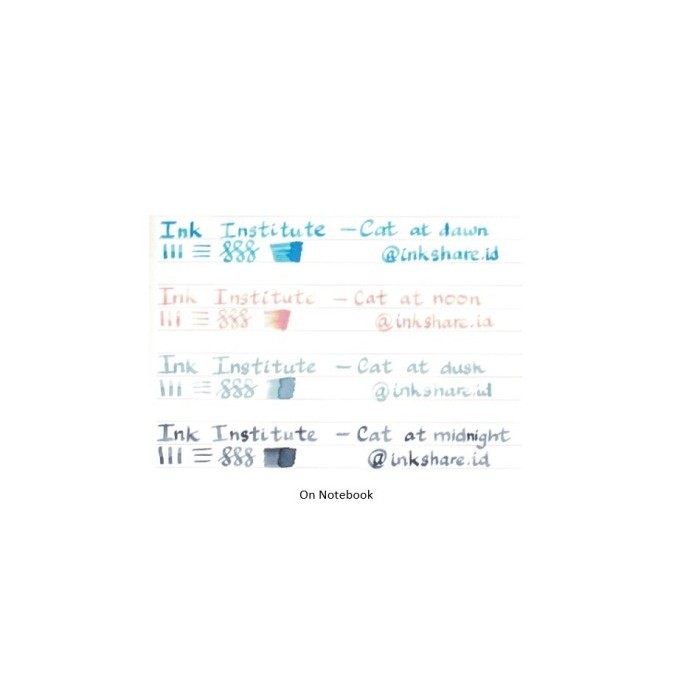 Ink Institute — Cat at dawn
@inkshare.id
Ink Institute — Cat at noon
@inkshare.id
Ink Institute — Cat at dusk
@inkshare.id
Ink Institute — Cat at midnight
@inkshare.id
On Notebook